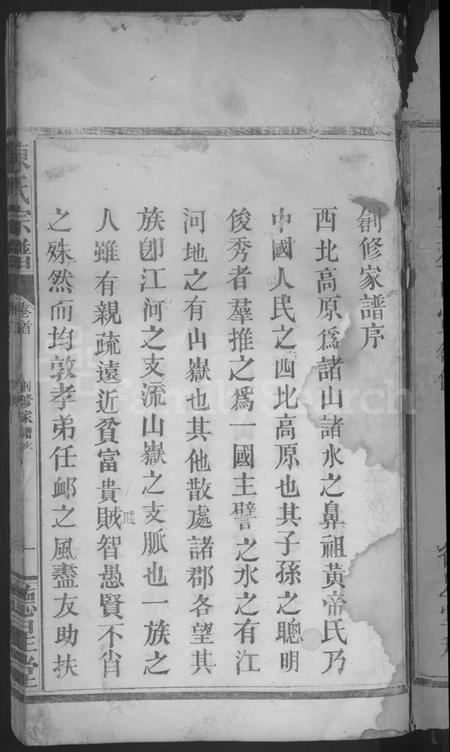 創修家譜序
西北高原爲諸山諸水之鼻祖黃帝氏乃
中國人民之西北高原也其子孫之聰明
俊秀者羣推之爲一國主譬之水之有江
河地之有山嶽也其他散處諸郡各望其
族卽江河之支流山嶽之支脈也一族之
人雖有親疏遠近貧富貴賊智愚賢不肖
之殊然而均敦孝弟任䘏之風盡友助扶
陳氏宗譜
卷首
創修家譜序
一
FamilySearch